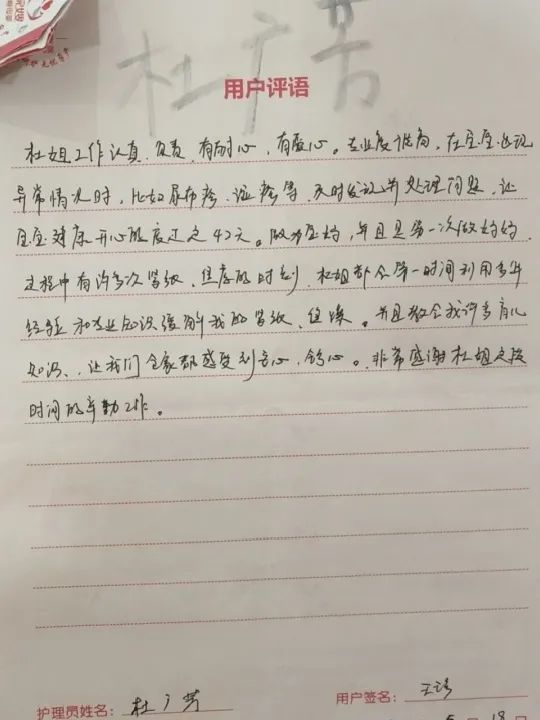 杜广芳
用户评语
杜姐工作认真、负责、有耐心、有爱心。专业度很高，在宝宝出现
异常情况时，比如尿布疹、湿疹等，及时发现并处理问题，让
宝宝健康开心的度过了42天。做为宝妈，并且是第一次做妈妈，
过程中有许多次紧张、焦虑的时刻，杜姐都会第一时间利用多年
经验和专业知识缓解我的紧张、焦虑。并且教会我许多育儿
知识，让我们全家都感受到安心、舒心。非常感谢杜姐这段
时间的辛勤工作。
护理员姓名：杜广芳
用户签名：王
18